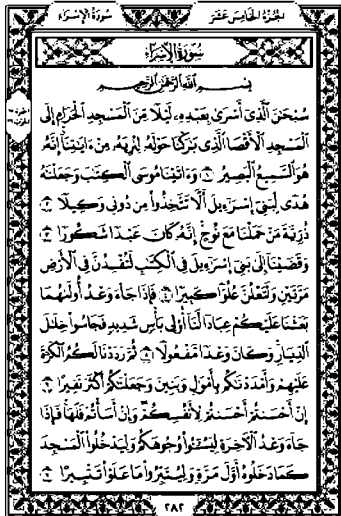 الجزء الخامس عشر
سورة الإسراء
سورة الإسراء
بسم الله الرحمن الرحيم
سُبْحَٰنَ ٱلَّذِىٓ أَسْرَىٰ بِعَبْدِهِۦ لَيْلًا مِّنَ ٱلْمَسْجِدِ ٱلْحَرَامِ إِلَى
ٱلْمَسْجِدِ ٱلْأَقْصَا ٱلَّذِى بَٰرَكْنَا حَوْلَهُۥ لِنُرِيَهُۥ مِنْ ءَايَٰتِنَآ إِنَّهُۥ
هُوَ ٱلسَّمِيعُ ٱلْبَصِيرُ ۝١ وَءَاتَيْنَا مُوسَى ٱلْكِتَٰبَ وَجَعَلْنَٰهُ
هُدًى لِّبَنِىٓ إِسْرَٰٓءِيلَ أَلَّا تَتَّخِذُوا۟ مِن دُونِى وَكِيلًا ۝٢
ذُرِّيَّةَ مَنْ حَمَلْنَا مَعَ نُوحٍ إِنَّهُۥ كَانَ عَبْدًا شَكُورًا ۝٣
وَقَضَيْنَآ إِلَىٰ بَنِىٓ إِسْرَٰٓءِيلَ فِى ٱلْكِتَٰبِ لَتُفْسِدُنَّ فِى ٱلْأَرْضِ
مَرَّتَيْنِ وَلَتَعْلُنَّ عُلُوًّا كَبِيرًا ۝٤ فَإِذَا جَآءَ وَعْدُ أُولَىٰهُمَا
بَعَثْنَا عَلَيْكُمْ عِبَادًا لَّنَآ أُو۟لِى بَأْسٍ شَدِيدٍ فَجَاسُوا۟ خِلَٰلَ
ٱلدِّيَارِ وَكَانَ وَعْدًا مَّفْعُولًا ۝٥ ثُمَّ رَدَدْنَا لَكُمُ ٱلْكَرَّةَ
عَلَيْهِمْ وَأَمْدَدْنَٰكُم بِأَمْوَٰلٍ وَبَنِينَ وَجَعَلْنَٰكُمْ أَكْثَرَ نَفِيرًا ۝٦
إِنْ أَحْسَنتُمْ أَحْسَنتُمْ لِأَنفُسِكُمْ وَإِنْ أَسَأْتُمْ فَلَهَا فَإِذَا
جَآءَ وَعْدُ ٱلْءَاخِرَةِ لِيَسُۥٓـُٔوا۟ وُجُوهَكُمْ وَلِيَدْخُلُوا۟ ٱلْمَسْجِدَ
كَمَا دَخَلُوهُ أَوَّلَ مَرَّةٍ وَلِيُتَبِّرُوا۟ مَا عَلَوْا۟ تَتْبِيرًا ۝٧
٢٨٢